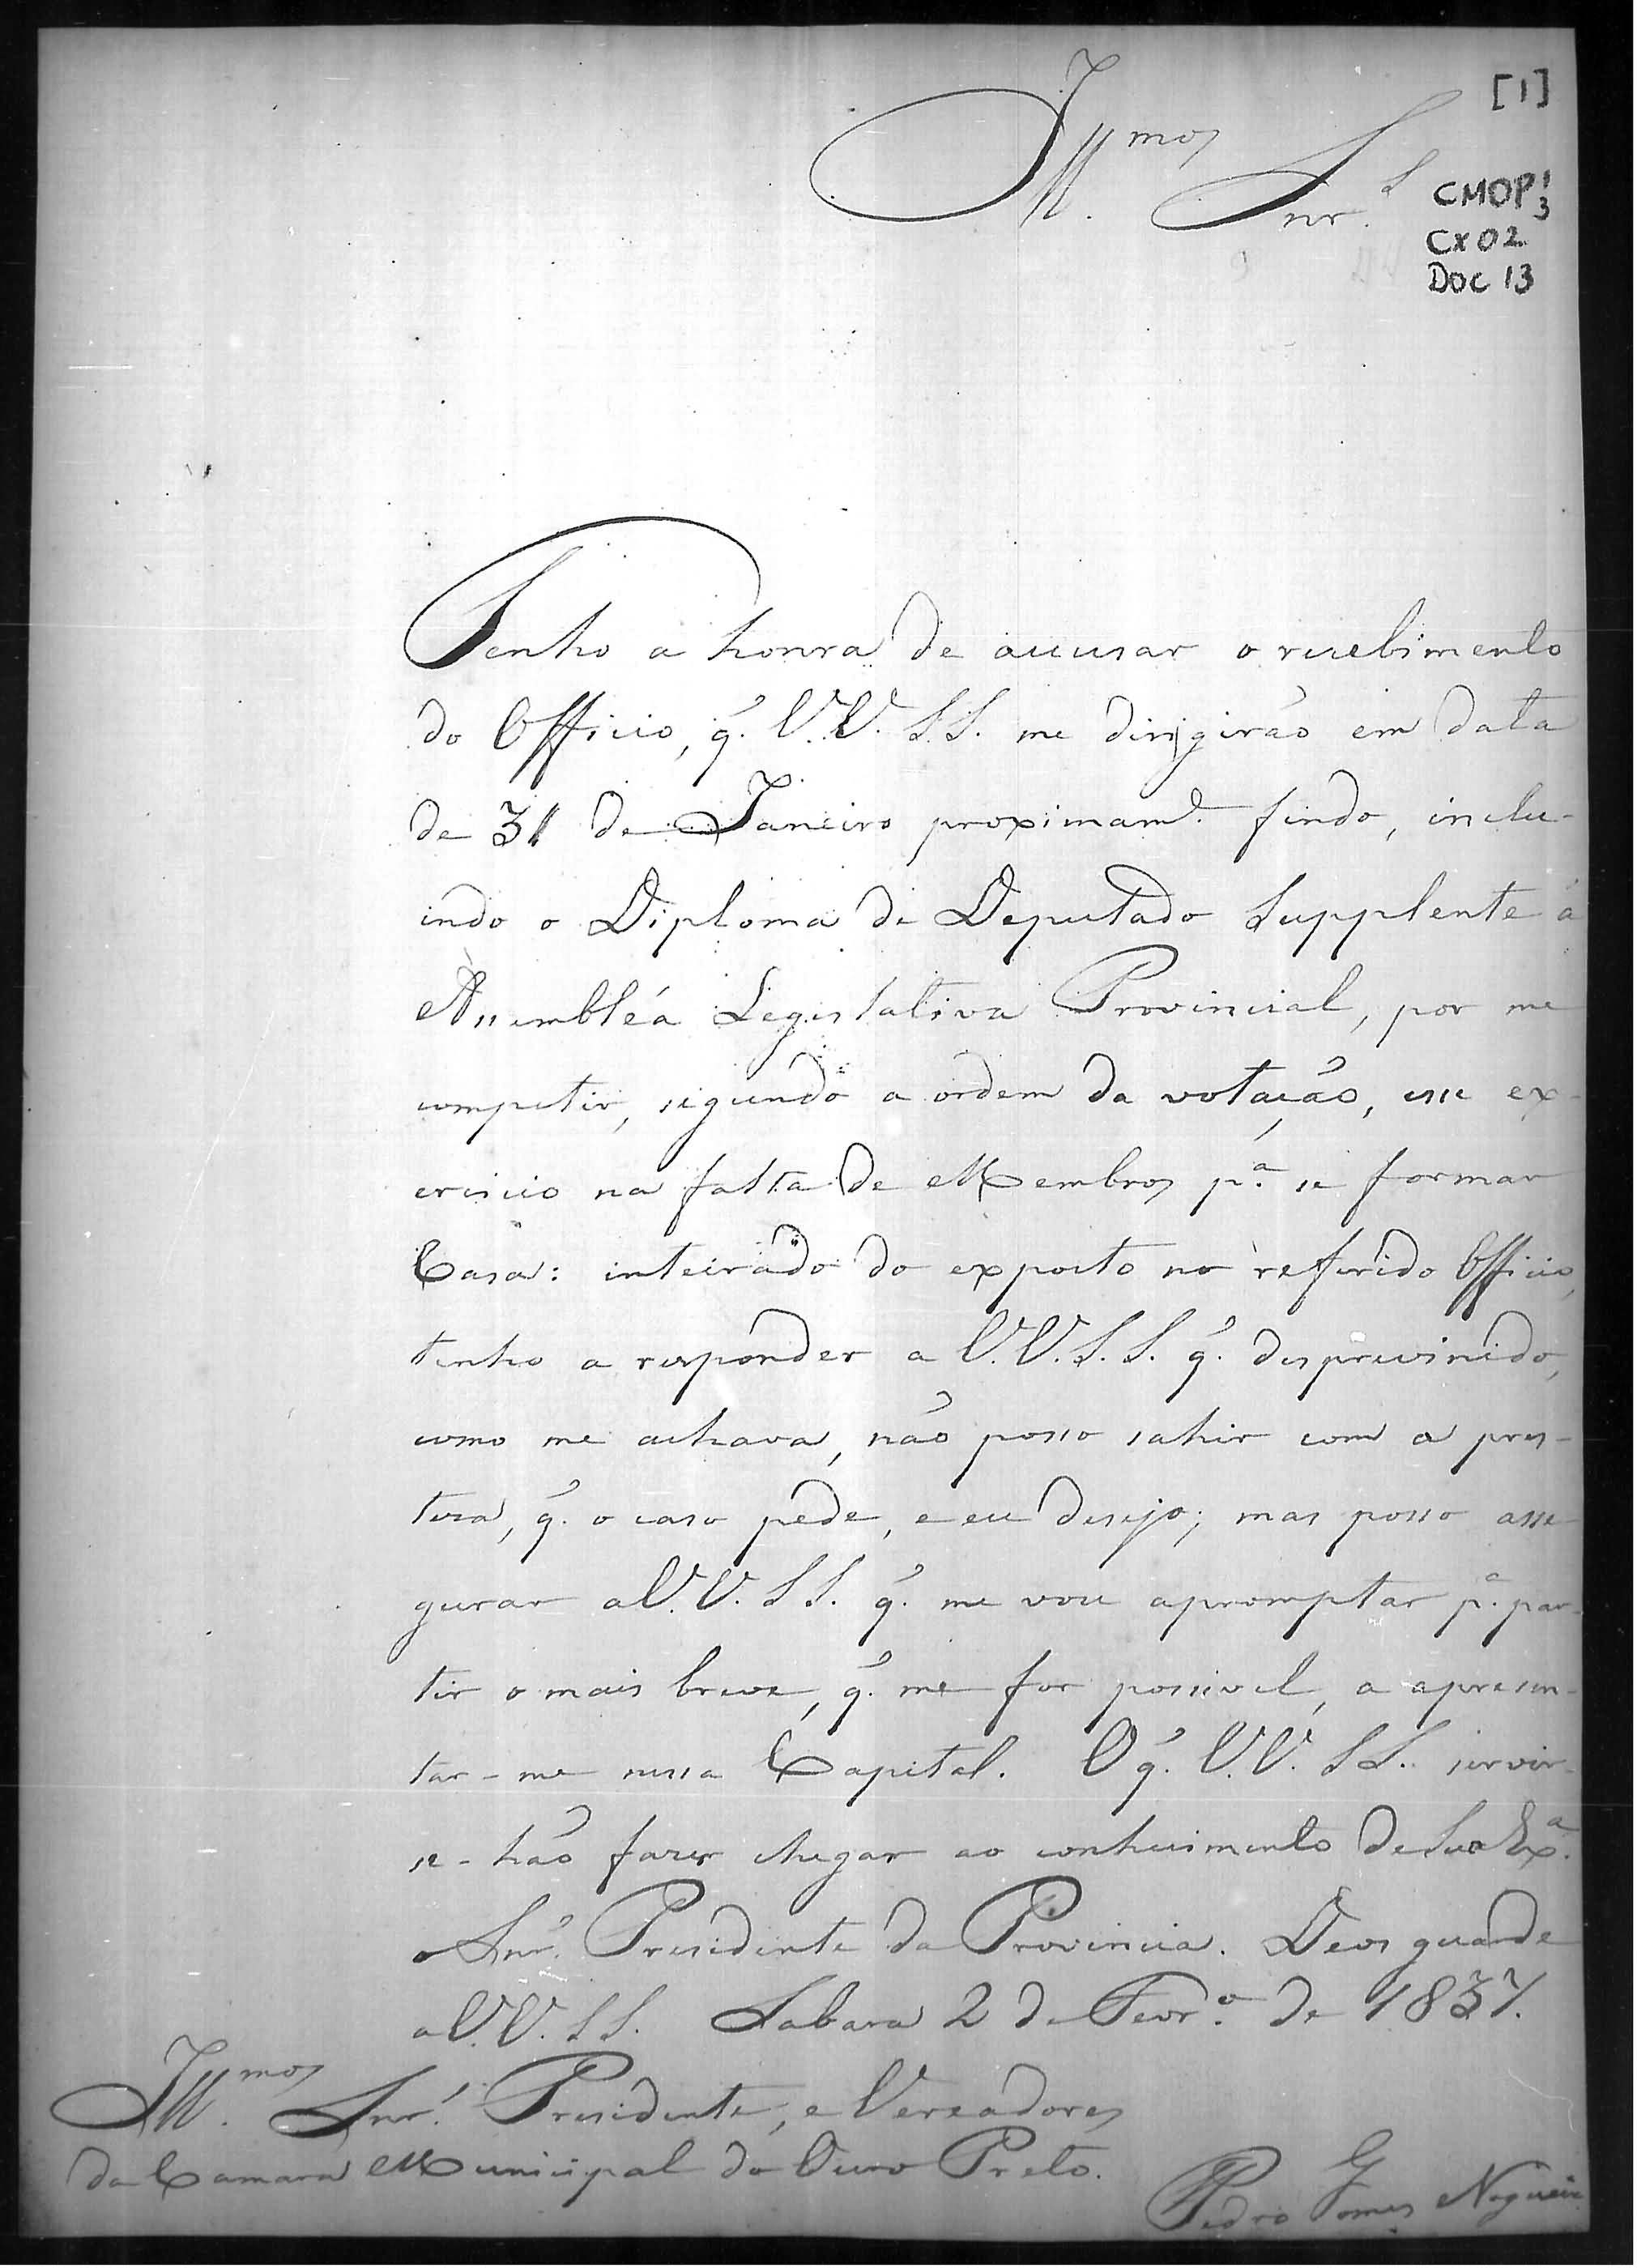 [1]
Ill.mos Snr.s
CMOP 1/3
Cx 02
Doc 13
Tenho a honra de accusar o recebimento
do Officio, q̃. V.V. S.S. me dirigirão em data
de 31 de Janeiro proximam.e findo, inclu-
indo o Diploma de Deputado Supplente á
Assembléa Legislativa Provincial, por me
competir, segundo a ordem da votação, esse ex-
ercicio na falta de Membros p.a se formar
Casa: inteirado do exposto no referido Officio,
tenho a responder a V.V. S.S. q̃. desprevinido,
como me achava, não posso sahir com a pres-
teza, q̃. o caso pede, e eu desejo; mas posso asse-
gurar a V.V. S.S. q̃. me vou apromptar p.a par-
tir o mais breve, q̃. me for possivel, a apresen-
tar-me nessa Capital. O q̃. V.V. S.S. servir-
se-hão fazer chegar ao conhecimento de Sua Ex.a
o Snr. Presidente da Provincia. Deos guarde
a V.V. S.S. Sabara 2 de Fevr.o de 1837.
Ill.mos Snr.s Presidente, e Vereadores
da Camara Municipal do Ouro Preto.
Pedro Gomes Nogueira